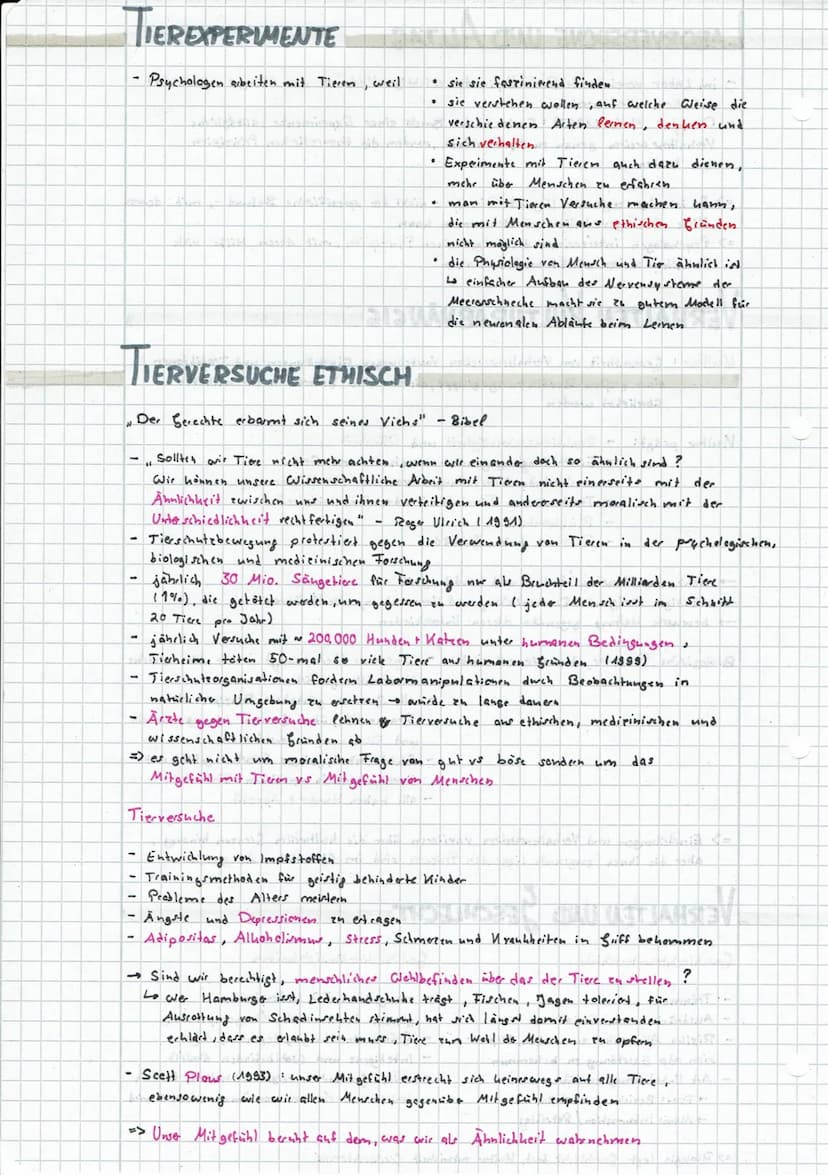 TIEREXPERIMENTE
- Psychologen arbeiten mit Tieren, weil
• sie sie faszinierend finden
• sie verstehen wollen, auf welche Weise die
verschiedenen Arten lernen, denken und
sich verhalten
• Experimente mit Tieren auch dazu dienen,
mehr über Menschen zu erfahren
• man mit Tieren Versuche machen kann,
die mit Menschen aus ethischen Gründen
nicht möglich sind
• die Physiologie von Mensch und Tier ähnlich ist
↳ einfacher Aufbau des Nervensystems der
Meeresschnecke macht sie zu gutem Modell für
die neuronalen Abläufe beim Lernen
TIERVERSUCHE ETHISCH
„Der Gerechte erbarmt sich seines Viehs" - Bibel
- „Sollten wir Tiere nicht mehr achten, wenn wir einander doch so ähnlich sind?
Wir können unsere wissenschaftliche Arbeit mit Tieren nicht einerseits mit der
Ähnlichkeit zwischen uns und ihnen verteitigen und andererseits moralisch mit der
Unterschiedlichkeit rechtfertigen" - Roger Ulrich (1991)
- Tierschutzbewegung protestiert gegen die Verwendung von Tieren in der psychologischen,
biologischen und medizinischen Forschung
- jährlich 30 Mio. Säugetiere für Forschung nur als Bruchteil der Milliarden Tiere
(1%), die getötet werden, um gegessen zu werden (jeder Mensch isst im Schnitt
20 Tiere pro Jahr)
- jährlich Versuche mit ≈ 200.000 Hunden + Katzen unter humanen Bedingungen,
Tierheime töten 50-mal so viele Tiere aus humanen Gründen (1999)
- Tierschutzorganisationen fordern Labormanipulationen durch Beobachtungen in
natürlicher Umgebung zu ersetzen → würde zu lange dauern
- Ärzte gegen Tierversuche lehnen Tierversuche aus ethischen, medizinischen und
wissenschaftlichen Gründen ab
=> es geht nicht um moralische Frage von gut vs böse sondern um das
Mitgefühl mit Tieren vs Mitgefühl von Menschen
Tierversuche
- Entwicklung von Impfstoffen
- Trainingsmethoden für geistig behinderte Kinder
- Probleme des Alters meistern
- Ängste und Depressionen zu ertragen
- Adipositas, Alkoholismus, Stress, Schmerzen und Krankheiten in Griff bekommen
→ Sind wir berechtigt, menschliches Wohlbefinden über das der Tiere zu stellen?
↳ wer Hamburger isst, Lederhandschuhe trägt, Fischen, Jagen toleriert, für
Ausrottung von Schadinsekten stimmt, hat sich längst damit einverstanden
erklärt, dass es erlaubt sein muss, Tiere zum Wohl der Menschen zu opfern
- Scott Plous (1993): unser Mitgefühl erstreckt sich keineswegs auf alle Tiere,
ebensowenig wie wir allen Menschen gegenüber Mitgefühl empfinden
=> Unser Mitgefühl beruht auf dem, was wir als Ähnlichkeit wahrnehmen